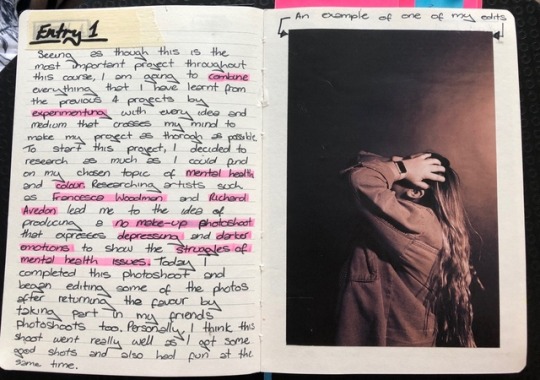 Entry 1
Seeing as though this is the
most important project throughout
this course, I am going to combine
everything that I have learnt from
the previous 4 projects by
experimenting with every idea and
medium that crosses my mind to
make my project as thorogh as possible
To start this project, I decided to
research as much as I could find
on my chosen topic of mental health
and colour. Researching artists such
as Francesca Woodman and Richard
Avedon lead me to the idea of
producing a no make-up photoshoot
that expresses depressing and darker
emotions to show the struggles of
mental health issues. Today I
completed this photoshoot and
began editing some of the photos
after returning the favour by
taking part in my friends
photoshoots too. Personally, I think this
shoot went really well as I got some
good shots and also had fun at the
same time.
An example of one of my edits